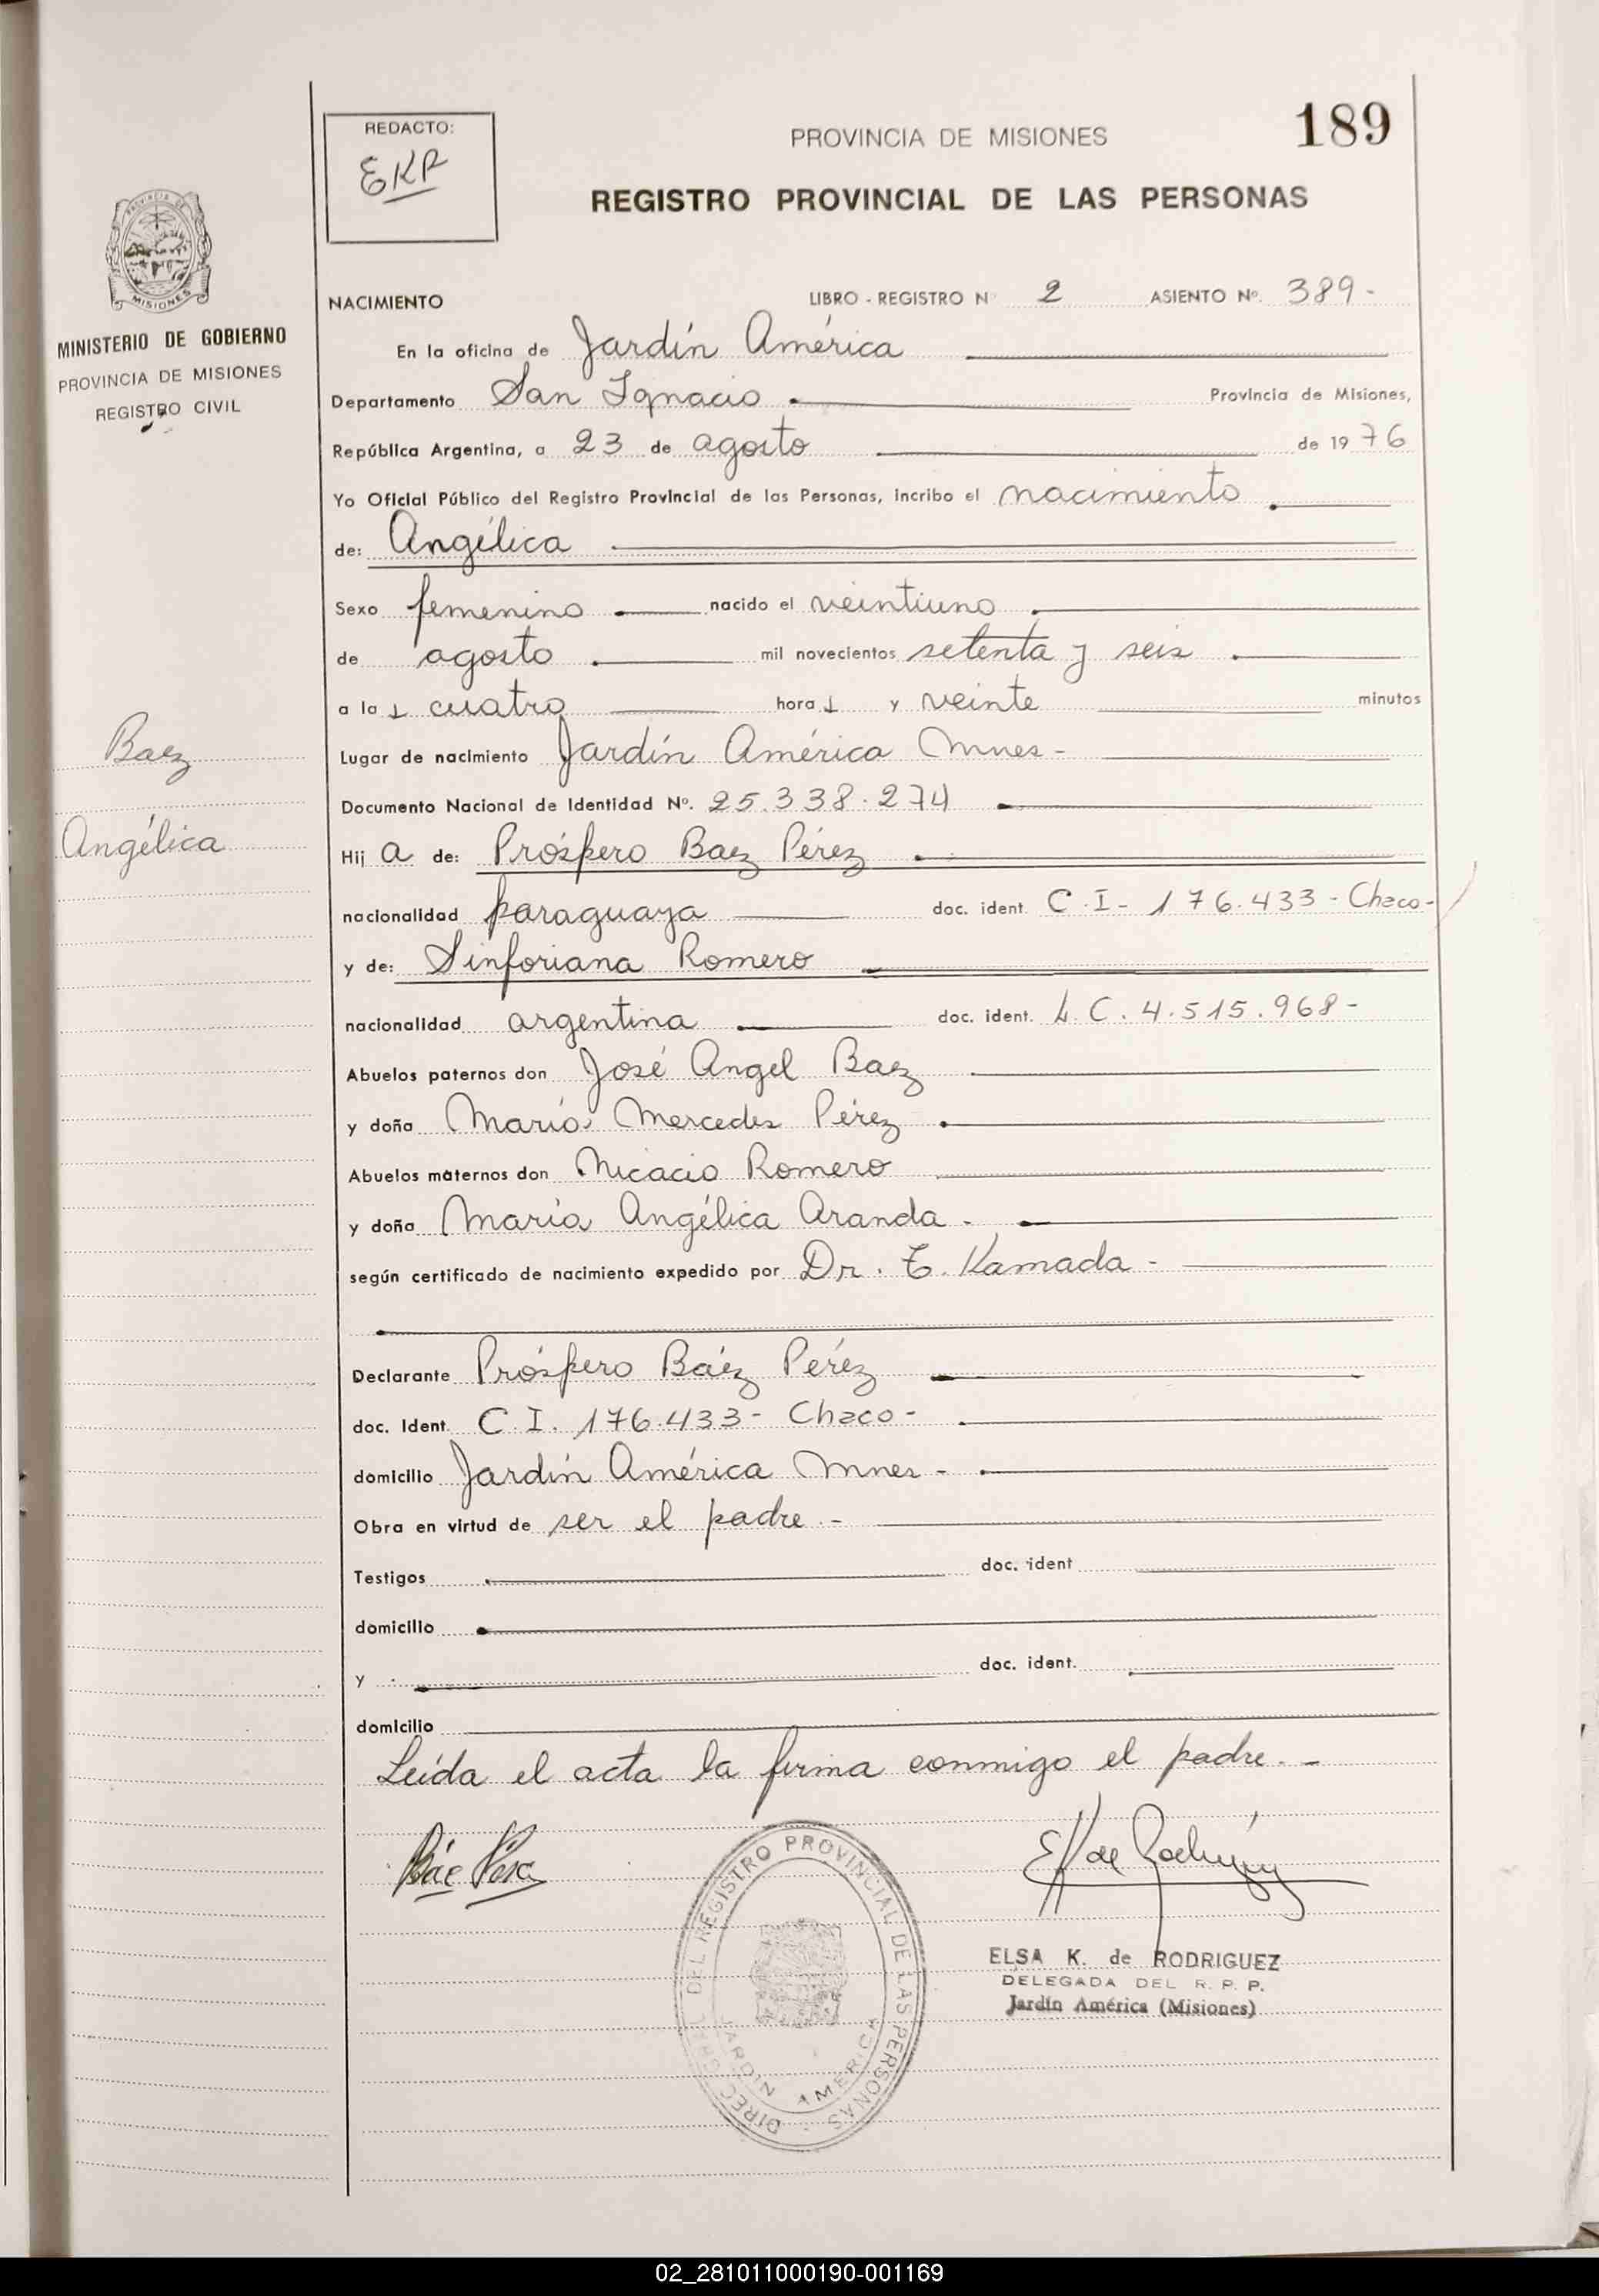 189
REDACTO:
EKR
PROVINCIA DE MISIONES
REGISTRO PROVINCIAL DE LAS PERSONAS
MISIONES
MINISTERIO DE GOBIERNO
PROVINCIA DE MISIONES
REGISTRO CIVIL
NACIMIENTO LIBRO - REGISTRO Nº 2 ASIENTO Nº. 389-
En la oficina de Jardín América
Departamento San Ignacio Provincia de Misiones,
República Argentina, a 23 de agosto de 1976
Yo Oficial Público del Registro Provincial de las Personas, incribo el nacimiento
de: Angélica
Sexo femenino nacido el veintiuno
de agosto mil novecientos setenta y seis
a la s cuatro hora s y veinte minutos
Baez
Lugar de nacimiento Jardín América Mnes-
Documento Nacional de Identidad Nº. 25.338.274
Angélica
Hij a de: Próspero Baez Pérez
nacionalidad paraguaya doc. ident. C.I- 176.433-Chaco-
y de: Sinforiana Romero
nacionalidad argentina doc. ident. L.C. 4.515.968-
Abuelos paternos don José Angel Baez
y doña María Mercedes Pérez
Abuelos maternos don Nicacio Romero
y doña María Angélica Aranda.
según certificado de nacimiento expedido por Dr. T. Kamada-
Declarante Próspero Baéz Peréz
doc. Ident. C.I. 176.433- Chaco-
domicilio Jardín América Mnes-
Obra en virtud de ser el padre.-
Testigos doc. ident
domicilio
y doc. ident.
domicilio
Leída el acta la firma conmigo el padre.-
E K de Rodriguez
DIREC. GRAL. DEL REGISTRO PROVINCIAL DE LAS PERSONAS
JARDIN AMERICA
ELSA K. de RODRIGUEZ
DELEGADA DEL R. P. P.
Jardín América (Misiones)
02_281011000190-001169